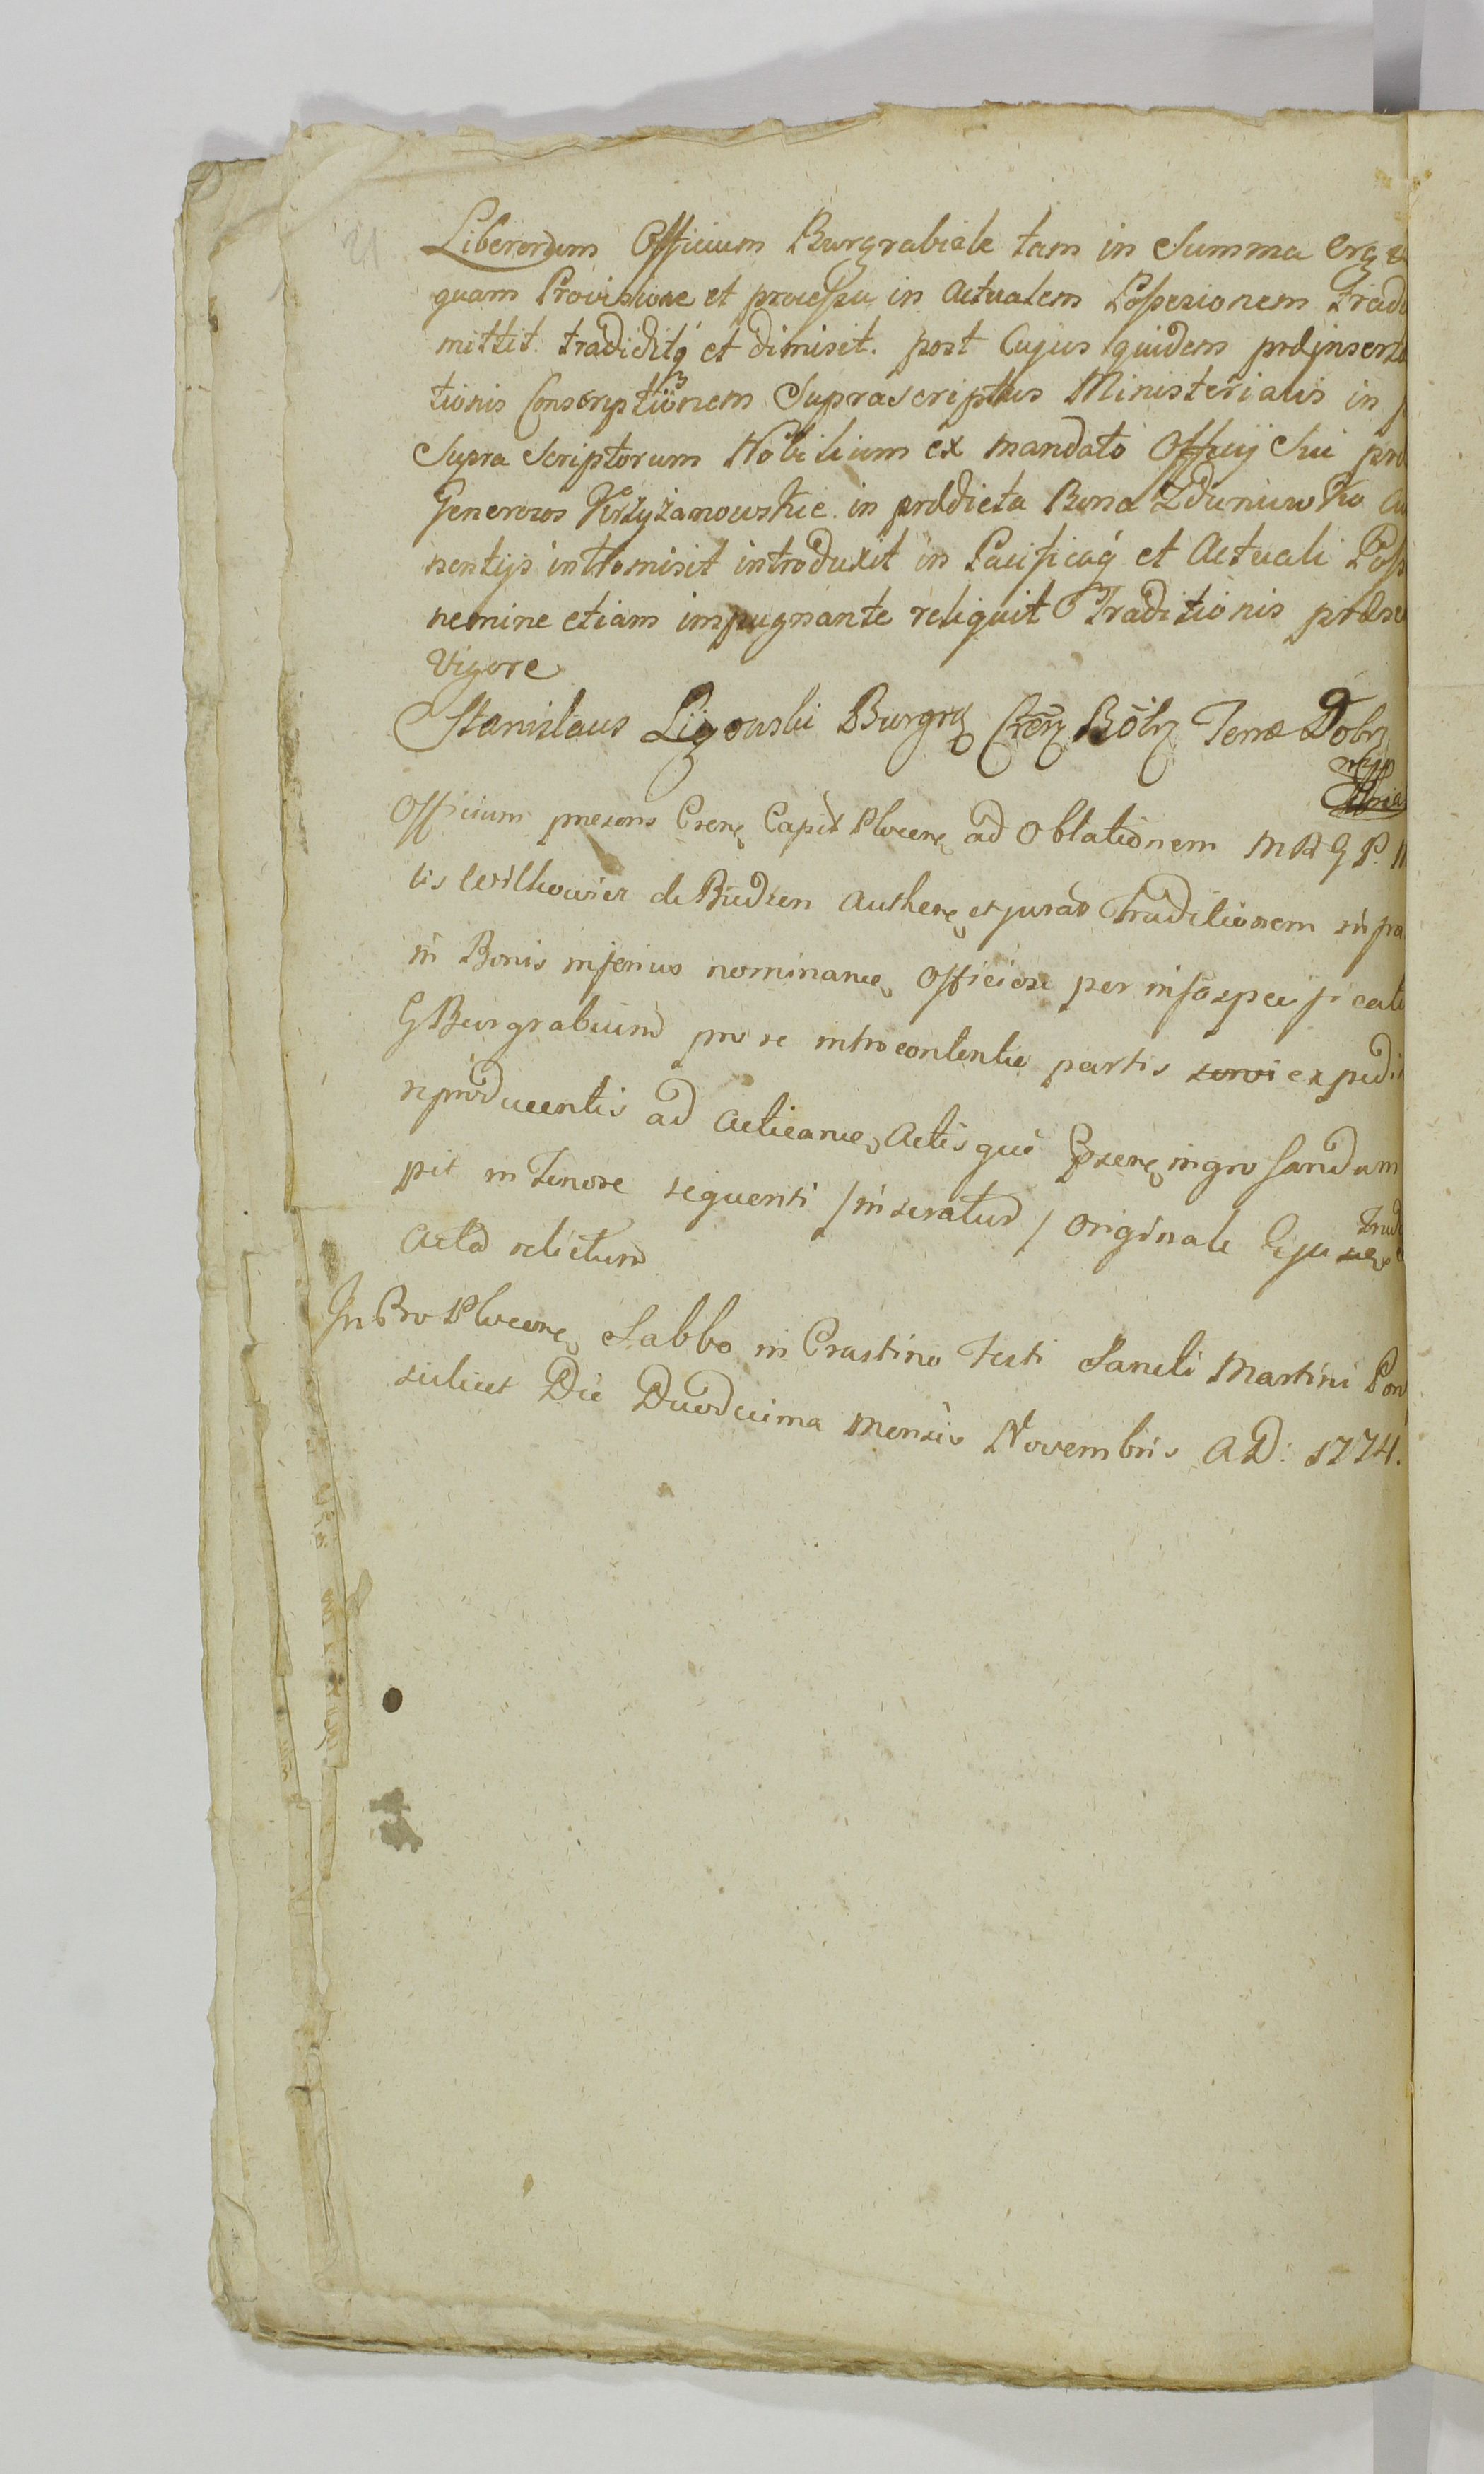 21
Liberordum Officium Burgrabiale tam in Summa Org
quam Provisione et processu in Actualem Possesionem Trad
mittit tradiditq et dimisit. post Cujus quidem præinserta
tionis Conscriptionem Suprascriptus Ministerialis in
Supra Scriptorum Nobilium ex mandato Officij Sui
Generosos Krzyżanowskie in prædicta Bona Zduniwko
nentijs intromisit introduxit in Pacificaq et Actuali Poss
nemine etiam impugnante reliquit Traditionis præse
Vigore
Stanislaus Ligowski Burgr Cren Bobr Terræ Dobr
mpp
Officium præsens Crens Capit Plocens ad Oblationem M R G P.
lis Wilkowier de Budzen Authens et jurad Traditionem in pa
in Bonis inferius nominan Officiose per infaspecificatu
G Burgrabium pro re introcontentu partis servi expedi
reproducentis ad Acticand Actisque ingrossandum
pit in Tenore sequenti / inseratur / Originale Eju
Trad
Acta relictum
In Cro Plocens Sabbo in Crastino Festi Sancti Martini Pon
scilicet Die Duodecima Mensis Novembris A D: 1774.